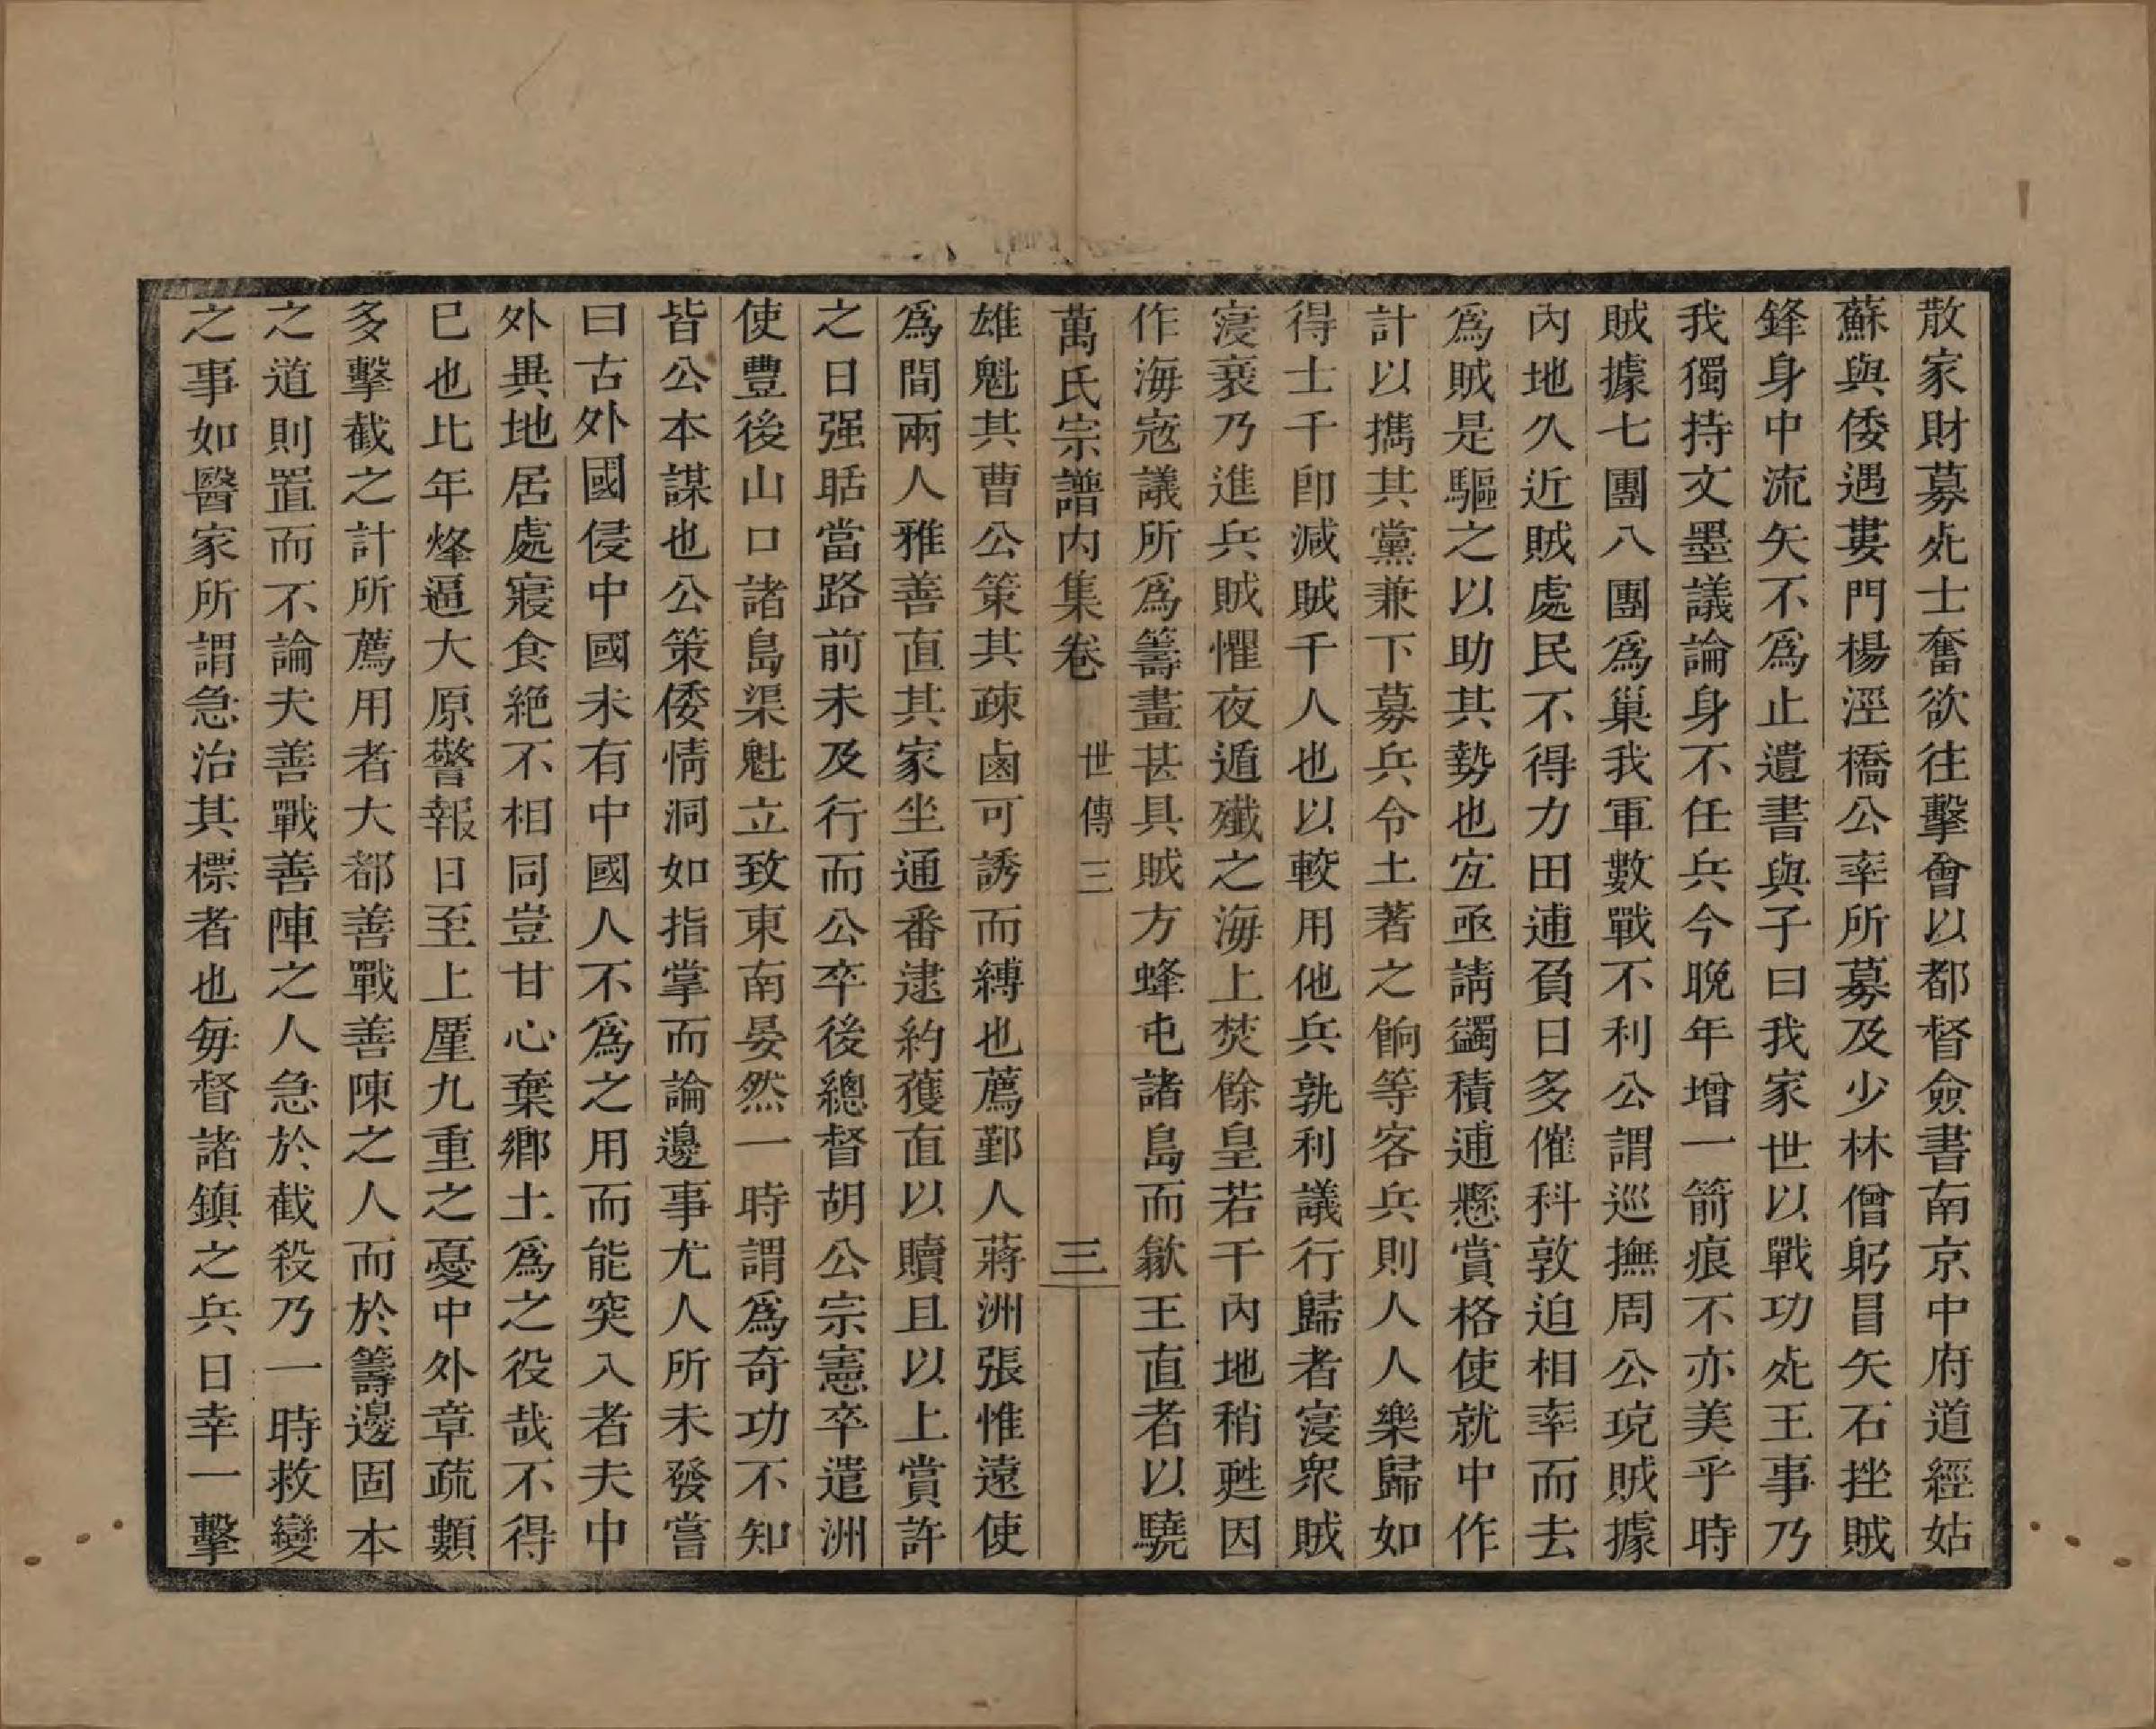 散家財募死士奮欲往擊會以都督僉書南京中府道經姑
蘇與倭遇婁門楊涇橋公率所募及少林僧躬冒矢石挫賊
鋒身中流矢不爲止遺書與子曰我家世以戰功死王事乃
我獨持文墨議論身不任兵今晚年增一箭痕不亦美乎時
賊據七團八團爲巢我軍數戰不利公謂巡撫周公琉賊據
內地久近賊處民不得力田逋負日多催科敦迫相率而去
爲賊是驅之以助其勢也宜亟請蠲積逋懸賞格使就中作
計以攜其黨兼下募兵令土著之餉等客兵則人人樂歸如
得士千卽減賊千人也以較用他兵孰利議行歸者寖衆賊
寖衰乃進兵賊懼夜遁殲之海上焚餘皇若干內地稍甦因
作海寇議所爲籌畫甚具賊方蜂屯諸島而歙王直者以驍
萬氏宗譜內集卷 世傳三 三
雄魁其曹公策其疎鹵可誘而縛也薦鄞人蔣洲張惟遠使
爲間兩人雅善直其家坐通番逮約獲直以贖且以上賞許
之日强聒當路前未及行而公卒後總督胡公宗憲卒遣洲
使豐後山口諸島渠魁立致東南晏然一時謂爲奇功不知
皆公本謀也公策倭情洞如指掌而論邊事尤人所未發嘗
曰古外國侵中國未有中國人不爲之用而能突入者夫中
外異地居處寢食絶不相同豈甘心棄鄉土爲之役哉不得
已也比年烽逼大原警報日至上厪九重之憂中外章疏顠
多擊截之計所薦用者大都善戰善陳之人而於籌邊固本
之道則置而不論夫善戰善陣之人急於截殺乃一時救變
之事如醫家所謂急治其標者也每督諸鎮之兵日幸一擊